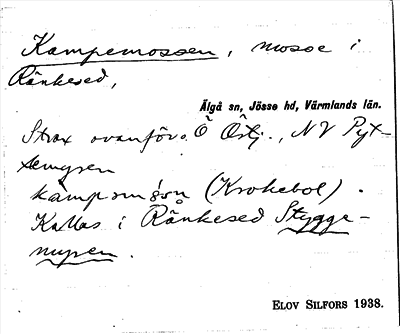 Kampemossen, mosse i
Ränkesed,
Älgå sn, Jösse hd, Värmlands län.
Strax ovanför Ö , NV Pyt-
(Krokebol).
Kallas i Ränkesed Stygge-
myren.
ELOV SILFORS 1938.